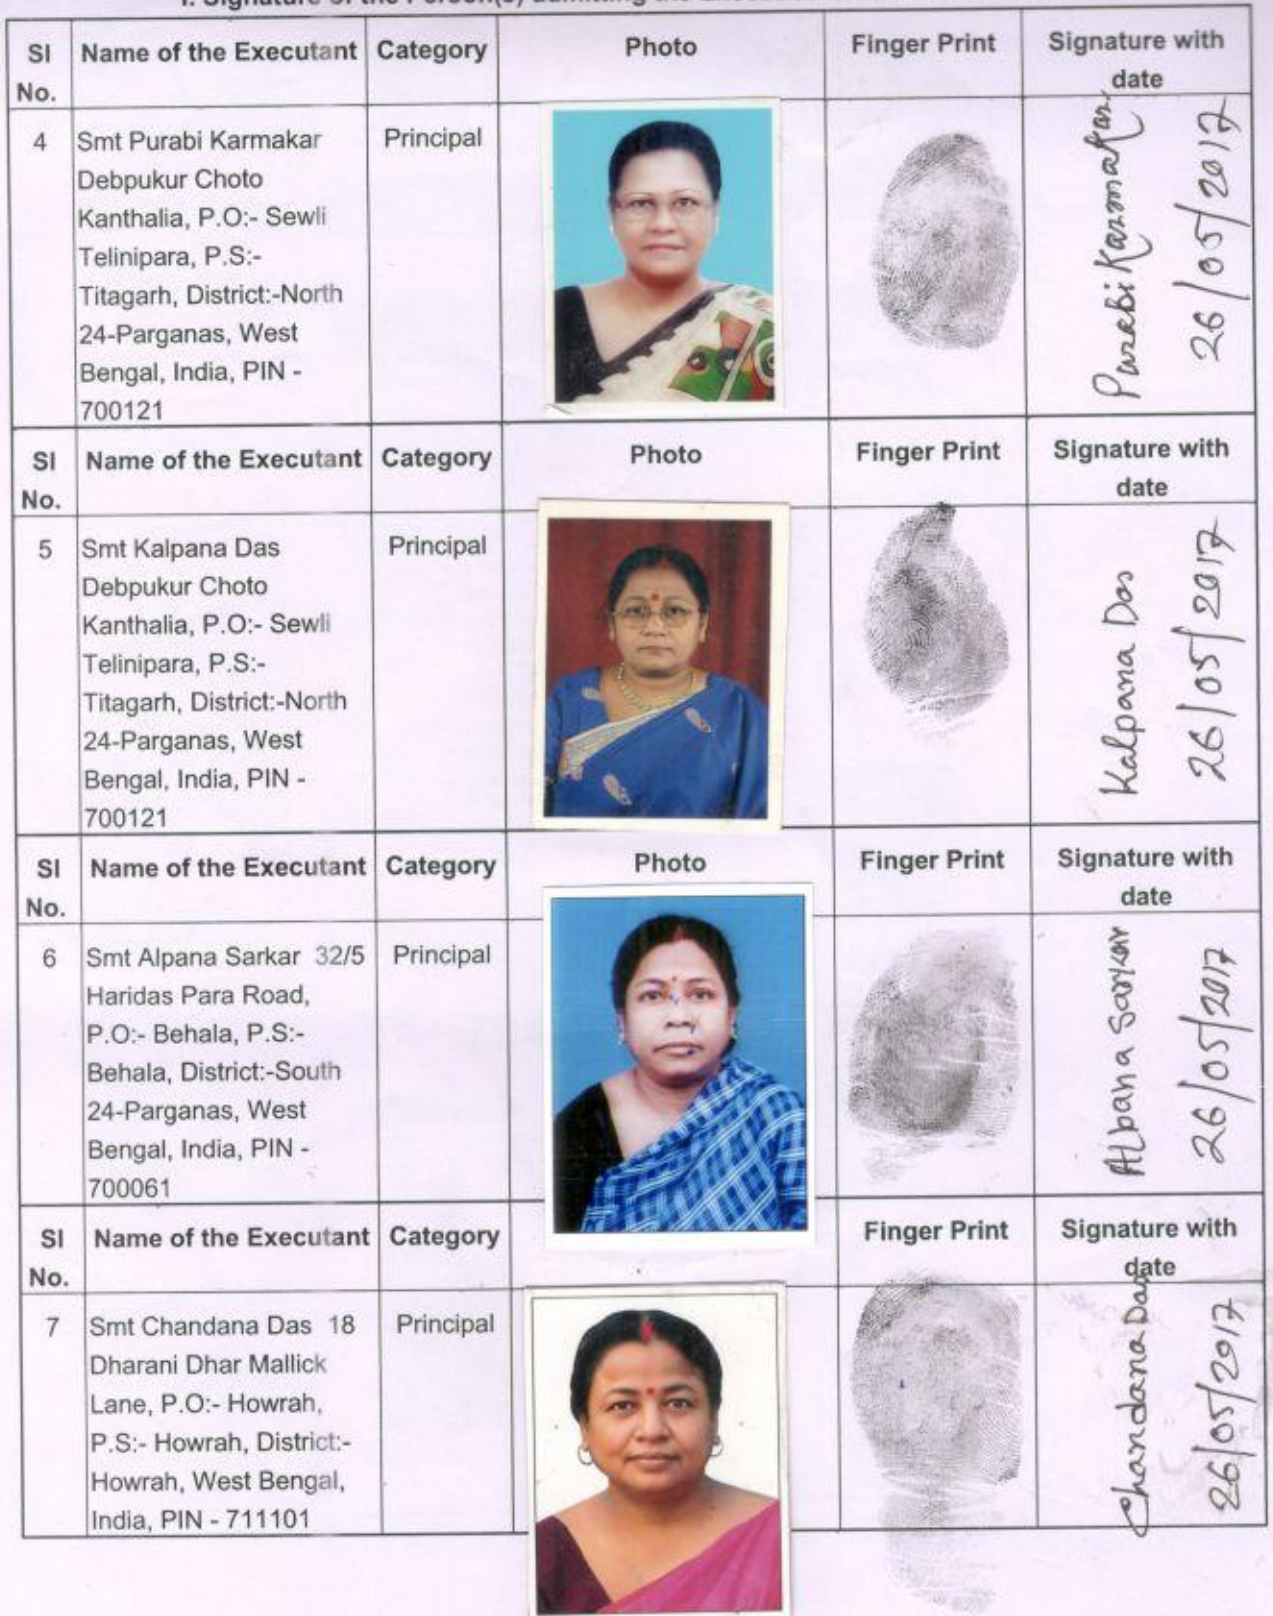 I. Signature of the Person(s) admitting the
Sl No. Name of the Executant Category Photo Finger Print Signature with date
4 Smt Purabi Karmakar Principal
Debpukur Choto
Kanthalia, P.O:- Sewli
Telinipara, P.S:-
Titagarh, District:-North
24-Parganas, West
Bengal, India, PIN -
700121
Purabi Karmakar
26/05/2017
Sl No. Name of the Executant Category Photo Finger Print Signature with date
5 Smt Kalpana Das Principal
Debpukur Choto
Kanthalia, P.O:- Sewli
Telinipara, P.S:-
Titagarh, District:-North
24-Parganas, West
Bengal, India, PIN -
700121
Kalpana Das
26/05/2017
Sl No. Name of the Executant Category Photo Finger Print Signature with date
6 Smt Alpana Sarkar 32/5 Principal
Haridas Para Road,
P.O:- Behala, P.S:-
Behala, District:-South
24-Parganas, West
Bengal, India, PIN -
700061
Albana Sarkar
26/05/2017
Sl No. Name of the Executant Category Finger Print Signature with date
7 Smt Chandana Das 18 Principal
Dharani Dhar Mallick
Lane, P.O:- Howrah,
P.S:- Howrah, District:-
Howrah, West Bengal,
India, PIN - 711101
Chandana Das
26/05/2017